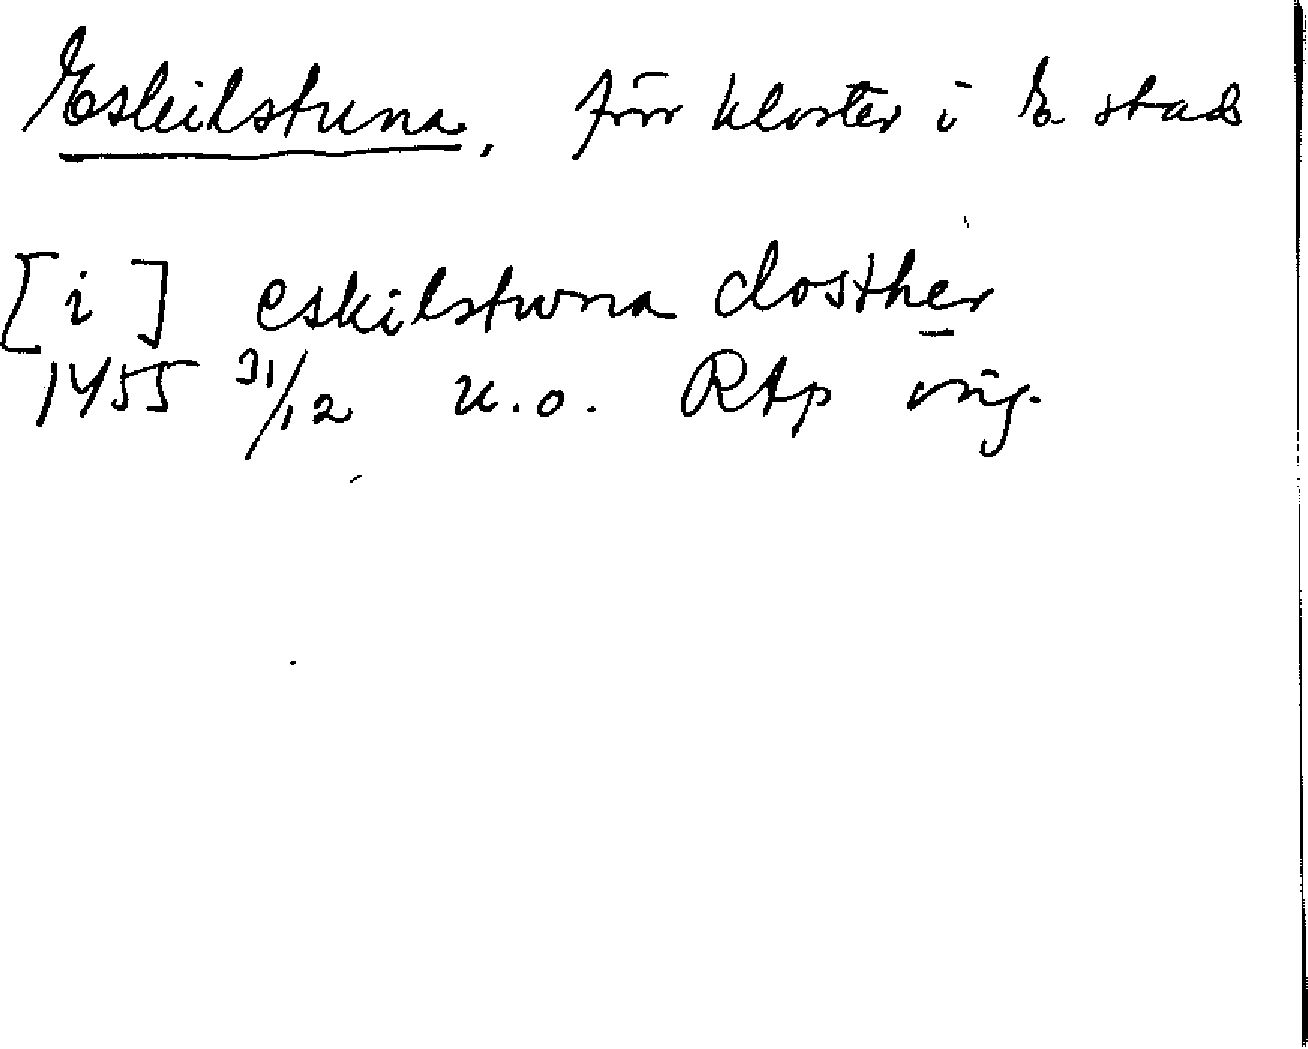 Eskilstuna, förr kloster i E stad
[i] eskilstwna closther
1455 31/12 u.o. RAp orig.